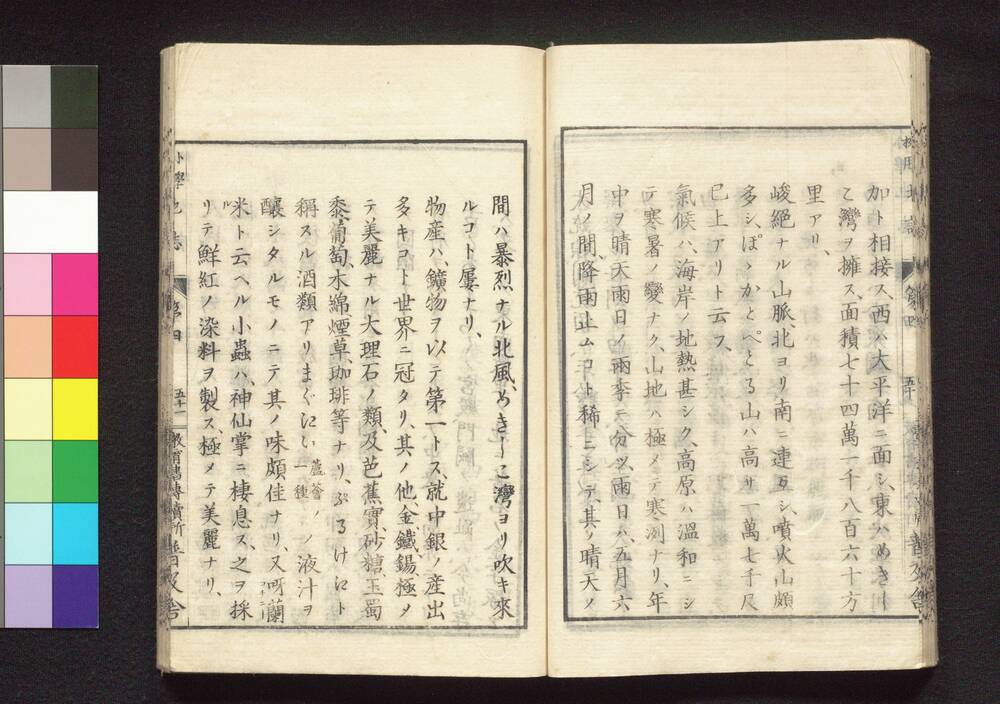 加ト相接ス、西ハ大平洋ニ面シ、東ハめきしこ
こ灣ヲ擁ス、面積七十四萬一千八百六十方
里アリ、
峻絕ナル山脈、北ヨリ南ニ連亙シ、噴火山頗
多シ、ぽゝかとぺとる山ハ、高サ一萬七千尺
已上アリト云フ、
氣候ハ、海岸ノ地熱甚シク、高原ハ溫和ニシ
テ寒暑ノ變ナク、山地ハ極メテ寒冽ナリ、年
中ヲ晴天雨日ノ兩季ニ分ツ、雨日ハ、五月六
月ノ間、降雨止ムコト稀ニシテ、其ノ晴天ノ
間ハ暴烈ナル北風、めきしこ灣ヨリ吹キ來
ルコト屢ナリ、
物産ハ、鑛物ヲ以テ第一トス、就中銀ノ産出
多キコト世界ニ冠タリ、其ノ他、金、鐵、錫、極メ
テ美麗ナル大理石ノ類、及芭蕉實、砂糖、玉蜀
黍、葡萄、木綿、煙草、珈琲等ナリ、ぷるけにト
稱スル酒類アリ、まぐにい 蘆薈ノ一種 ノ液汁ヲ
釀シタルモノニテ其ノ味頗佳ナリ、又呀蘭
米ト云ヘル小蟲ハ、神仙掌ニ棲息ス、之ヲ採
リテ鮮紅ノ染料ヲ製ス、極メテ美麗ナリ、
小學地誌
第四
五十一